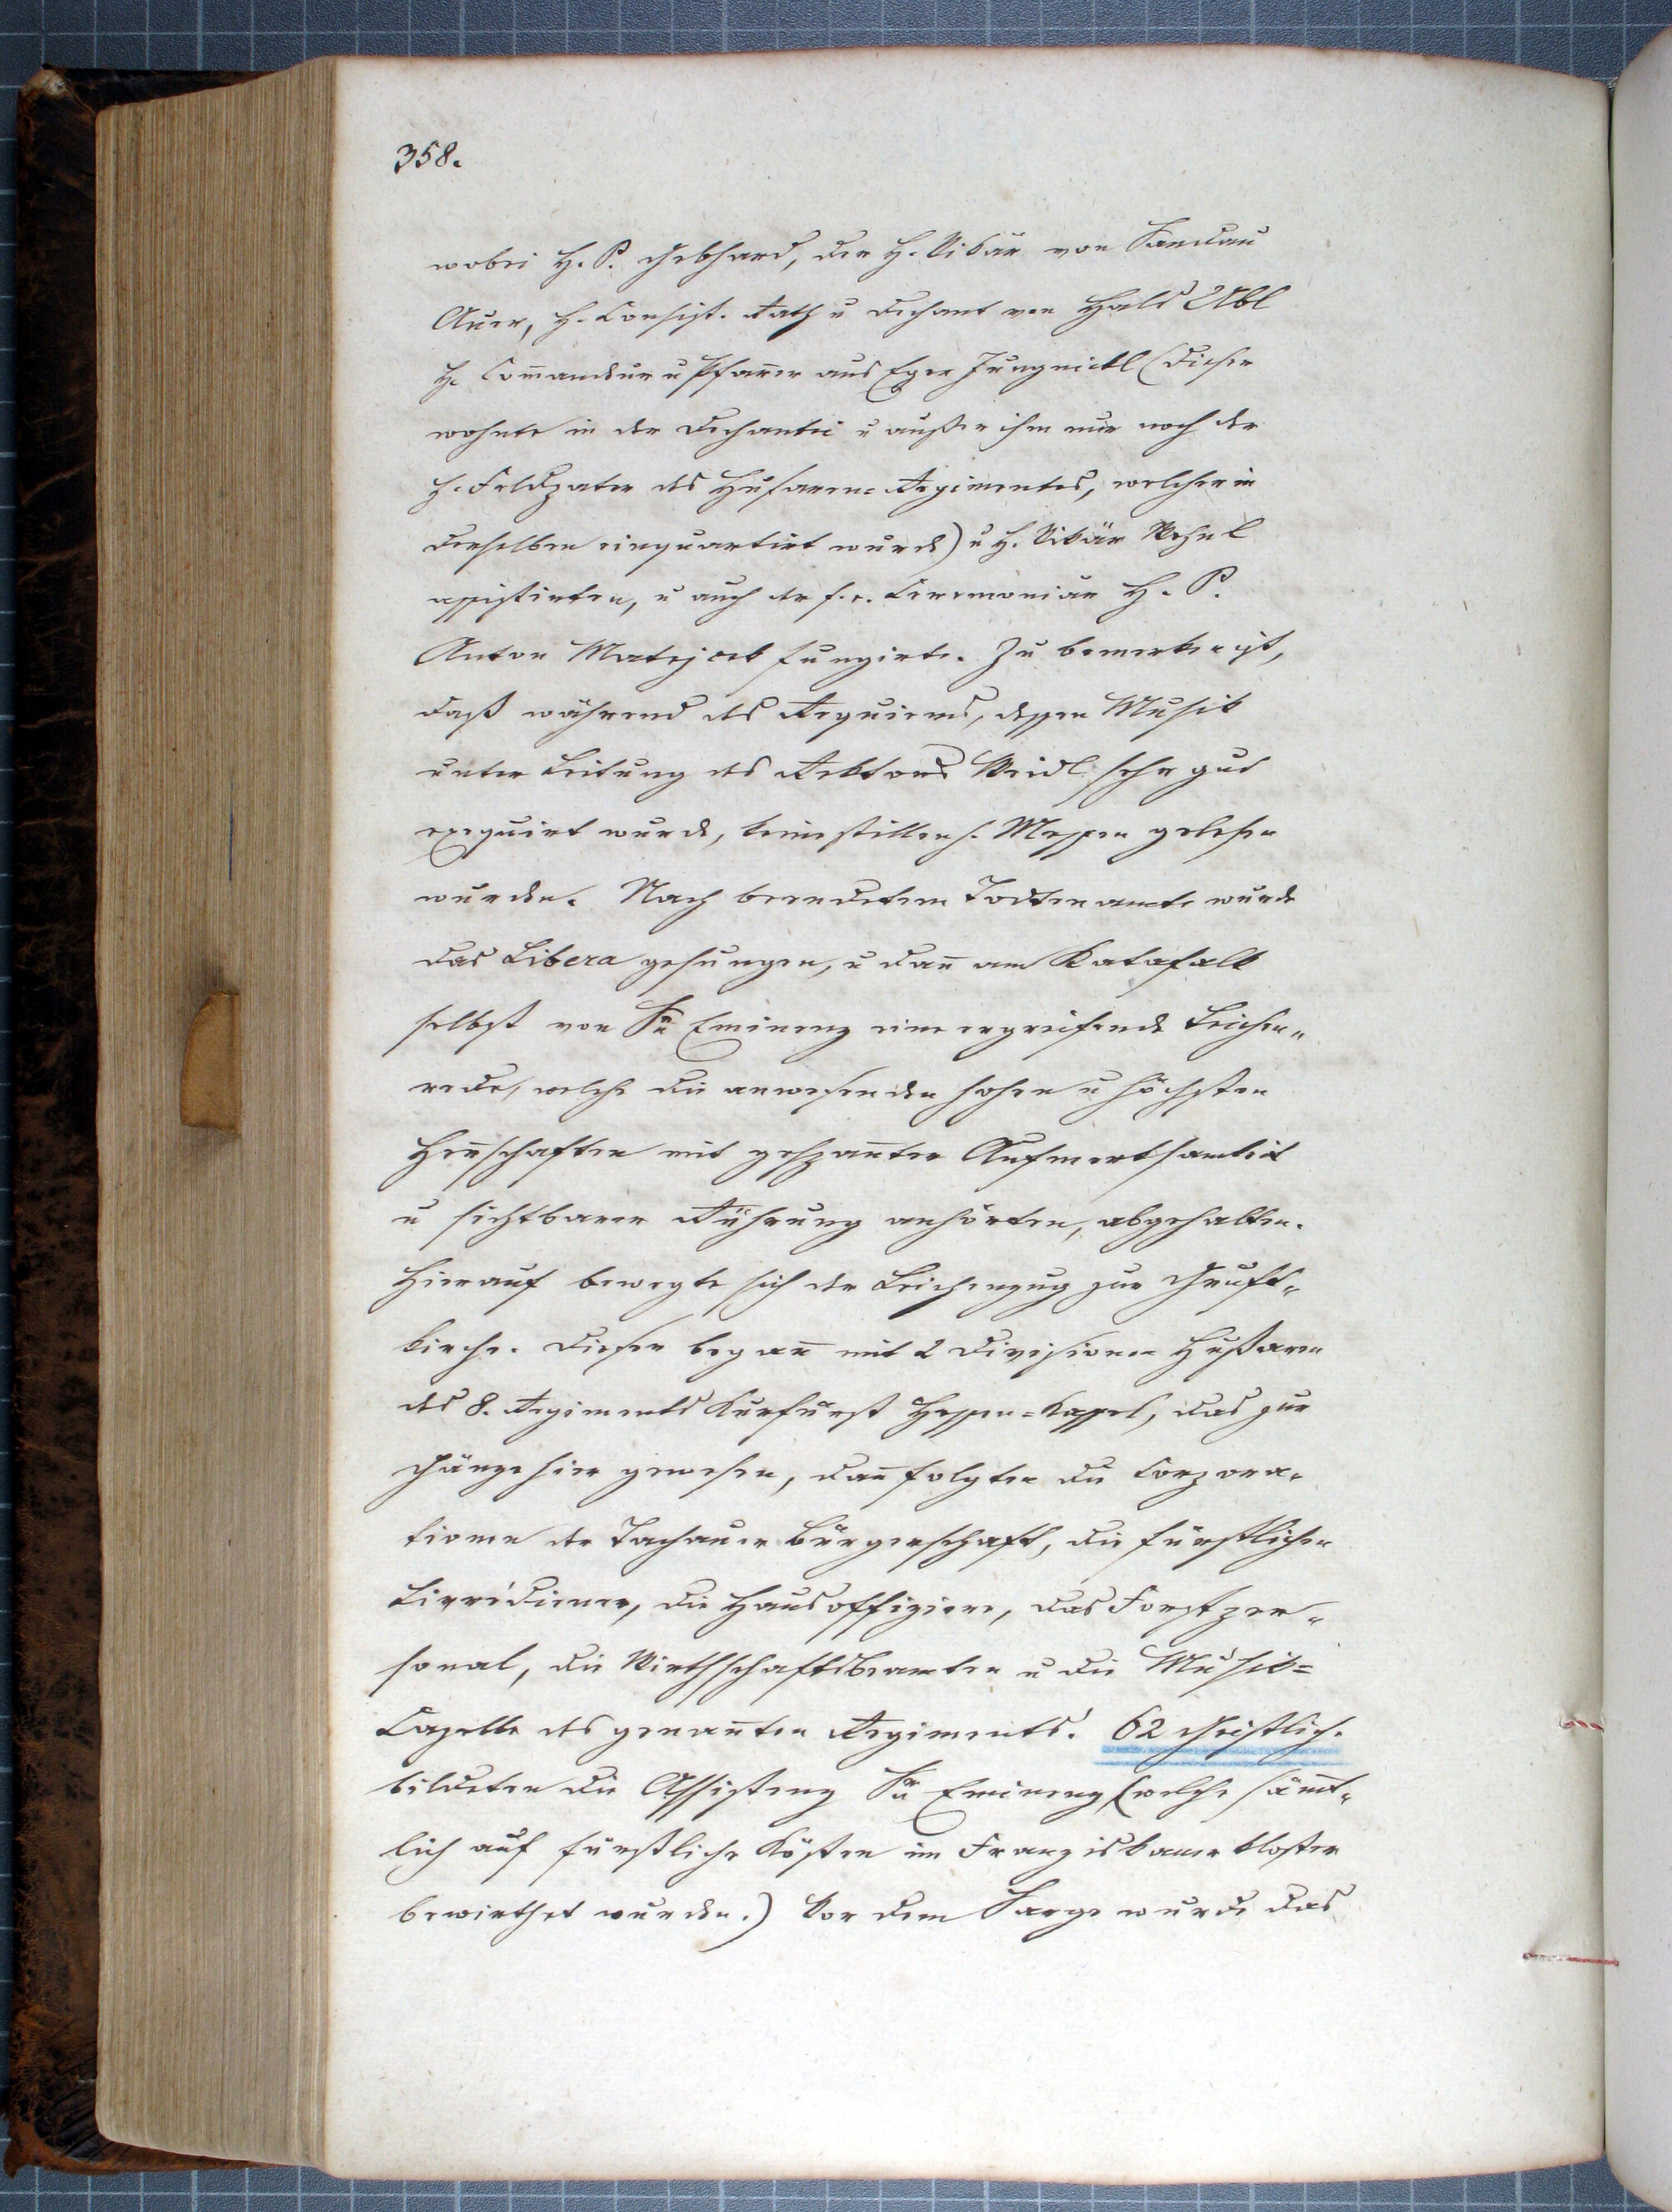 358.
wobei H. P. Gebhard, der H. Vikär von Sandau
Auer, H. Consist. Rath u Dechant von Haid Übl
H. Com̄andeur u Pfarrer aus Eger Jungnickl (dieser
wohnte in der Dechantei u außer ihm nur noch der
H. Feldpater des Husaren-Regimentes, welcher in
derselben einquartirt wurde) u H. Vikär
assistirten, u auch der f. e. Ceremoniär H. P.
Anton Matejcek fungirte. Zu bemerken ist,
daß während des Requiems, dessen Musik
unter Leitung des Rektors Weidl sehr gut
exequirt wurde, keine stillen h. Messen gelesen
wurden. Nach beendetem Todtenamte wurde
das Libera gesungen, u dan̄ am Katafalk
selbst von Sr Eminenz eine ergreifende Leichen-
rede, welche die anwesenden hohen u höchsten
Herrschaften mit gespan̄ter Aufmerksamkeit
u sichtbarer Rührung anhörten, abgehalten.
Hierauf bewegte sich der Leichenzug zur Gruft-
kirche. Dieser began̄ mit 2 Divisionen Hußaren
des 8. Regiments Kurfürst Hessen-Kassel, das zur
Gänze hier gewesen, dan̄ folgten die Corpora-
tionen der Tachauer Bürgerschaft, die fürstlichen
Livrédiener, die Hausoffiziere, das Forstper-
sonal, die Wirthschaftsbeamten u die Musik-
Capelle des genan̄ten Regiments. 62 Geistliche
bildeten die Assistenz Sr Eminenz (welche sämt-
lich auf fürstliche Kosten im Franziskanerkloster
bewirthet wurden.) Vor dem Sarge wurde das